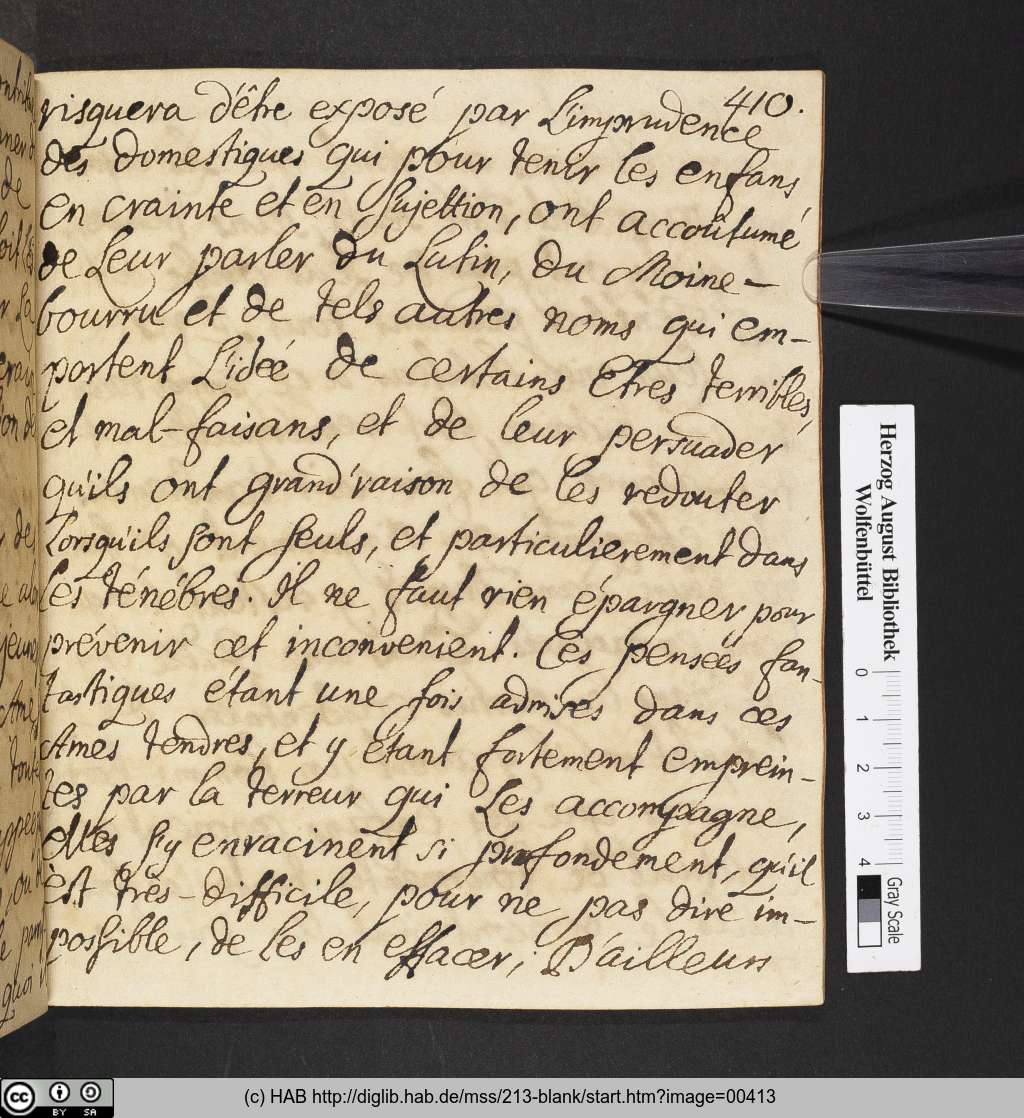 410.
risquera d'être exposé par L'imprudence
des domestiques qui pour tenir les enfans
en crainte et en sujettion, ont accoûtumé
de Leur parler du Lutin, du Moine-
bourru et de tels autres noms qui em-
portent L'ideé de certains Etres terribles,
et mal-faisans, et de leur persuader
qu'ils ont grand'raison de les redouter
Lorsqu'ils sont seuls, et particulierement dans
les ténébres. Il ne faut rien épargner pour
prévenir cet inconvenient. Ces penseés fan-
tastiques étant une fois admises dans ces
Ames tendres, et y étant fortement emprein-
tes par la terreur qui Les accompagne,
elles s'y enracinent si profondement, qu'il
est très-difficile, pour ne pas dire im-
possible, de les en effacer; D'ailleurs
Herzog August Bibliothek
Wolfenbüttel
0 1 2 3 4
Gray Scale
cc BY SA
(c) HAB http://diglib.hab.de/mss/213-blank/start.htm?image=00413